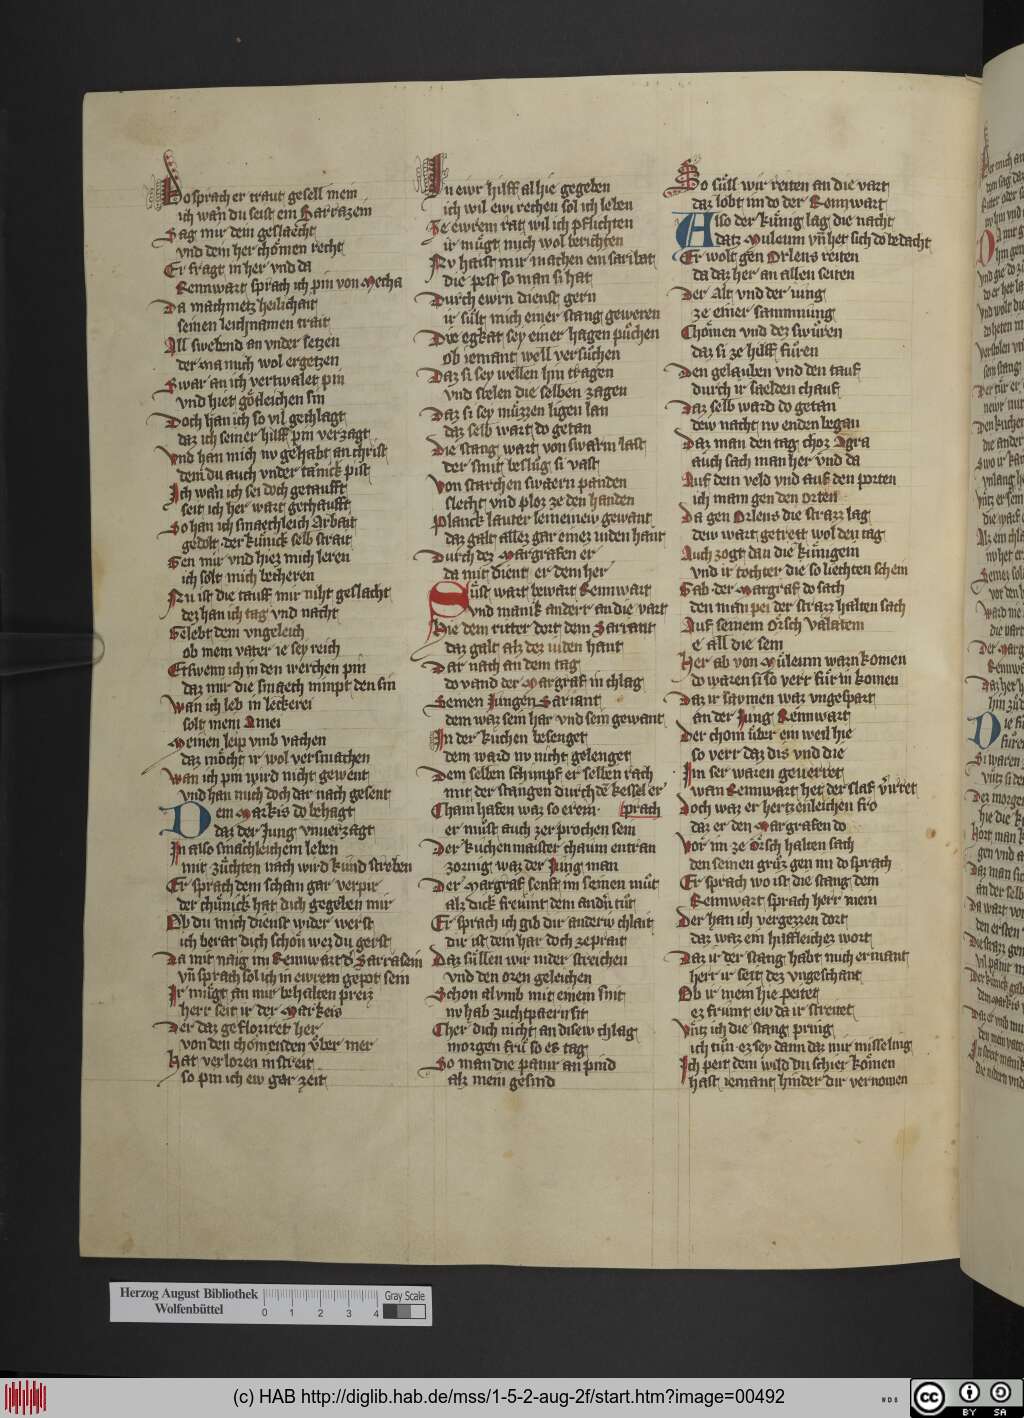 Do sprach er traut gesell mein
ich wän du seist ein Sarrazein
Sag mir dein geslaecht
vnd dein her chömen recht
Er fragt in her vnd da
Rennwart sprach ich pin von Mecha
Da machmetz heilichait
seinen leichnamen trait
All swebend an vnder setzen
der ma mich wol ergetzen
Swar an ich vertwalet pin
vnd hiet götleichen sin
Doch han ich so vil gechlagt
daz ich seiner hilff pin verzagt
Vnd han mich nv gehabt an christ
dem du auch vnder tänick pist
Ich wän ich sei doch getaufft
seit ich her wart gechaufft
So han ich smaechleich Arbait
gedolt der künick selb strait
Gen mir vnd hiez mich leren
ich solt mich becheren
Nv ist die tauff mir niht geslacht
dez han ich tag vnd nacht
Gelebt dem vngeleich
ob mein vater ie sey reich
Etswenn ich in den werchen pin
daz mir die smaech nimpt den sin
Wan ich leb in leckerei
solt mein Amei
Meinen leip vmb vachen
daz möcht ir wol versmachen
Wan ich pin wird nicht gewent
vnd han mich doch dar nach gesent
Dem Markis do behagt
daz der Jung vnuerzagt
In also smächleichem leben
mit züchten nach wird kund streben
Er sprach dem scham gar verpir
der chünick hat dich gegeben mir
Ob du mich dienst wider werst
ich berat dich schön wez du gerst
Da mit naig im Rennwart d' Sarrasein
vn̄ sprach sol ich in ewrem gepot sein
Ir mügt an mir behalten preiz
herr seit ir der Markeis
Der daz gefloriret her
von den chömenden über mer
Hat verlozen in streit
so pin ich ew gar zeit
In ewr hilff al hie gegeben
ich wil ewr rechen sol ich leben
Ze ewrem rat wil ich pflichten
ir mügt mich wol berichten
Nv haist mir machen ein saribat
die pest so man si hat
Durch ewrn dienst gern
ir sült mich einer stang geweren
Die egkat sey einer hagen püchen
ob iemant well versüchen
Daz si sey wellen hin tragen
vnd stelen die selben zagen
Daz si sey müzzen ligen lan
daz selb wart do getan
Die stang wart von swarm last
der smit beslüg si vast
Von starchen swaern panden
slecht vnd ploz ze den handen
Planck lauter leineinew gewant
daz galt allez gar einez iuden hant
Durch dez Margrafen er
da mit dient er dem her
Süst wart bewart Rennwart
vnd manik ander an die vart
Hie dem ritter dort dem Sarrant
daz galt alz dez iuden hant
Dar nach an dem tag
do vand der Margraf in chlag
Seinen Jungen Sariant
dem waz sein har vnd sein gewant
In der küchen besenget
dem ward nv nicht gelenget
Dem selben schimpf er selben rach
mit der stangen durch dē kessel er
Cham hafen waz so erein sprach
er müst auch zerprochen sein
Der kuchenmaister chaum entran
zornig waz der Jung man
Der Margraf senft im seinen müt
alz dick freunt dem andn̄ tüt
Er sprach ich gib dir anderw chlait
dir ist dein har doch ze prait
Daz süllen wir nider streichen
vnd den oren geleichen
Schon al vmb mit einem snit
nv hab zuchtpaern sit
Cher dich nicht an disew chlag
morgen frü so es tag
So man die panir an pind
alz mein gesind
So süll wir reiten an die vart
daz lobt im do der Rennwart
Also der künig lag die nacht
datz Muleun vn̄ het sich do bedacht
Er wolt gen Orlens reiten
da daz her an allen seiten
Der Alt vnd der iung
ze einer sammnung
Chömen vnd dez swüren
daz si ze hilff füren
Den gelauben vnd den tauf
durch ir saelden chauf
Daz selb ward do getan
dew nacht nv enden began
Daz man den tag choz Agra
auch sach man her vnd da
Auf dem veld vnd auf den porten
ich main gen den orten
Da gen Orlens die strazz lag
dew wart getrett wol den tag
Auch zogt dan die künigein
vnd ir tochter die so liechten schein
Gab der Margraf do sach
den man pei der strazz halten sach
Auf seinem orsch valatein
e all die sein
Her ab von Muleun warn komen
do waren si so verr für in komen
Daz ir saymen waz vngespart
an der Jung Rennwart
Der chom über ein weil hie
so verr daz dis vnd die
Im ser waren geuerret
wan Rennwart het der slaf v'irret
Doch waz er hertzenleichen fro
daz er den Margrafen do
Vor im ze Orsch halten sach
den seinen grüz gen im do sprach
Er sprach wo ist die stang dein
Rennwart sprach herr mein
Der han ich vergezzen dort
daz waz ein hilffleichez wort
Daz ir der stang habt mich ermant
herr ir seit dez vngeschant
Ob ir mein hie peitet
ez frumt ew da ir streitet
Vntz ich die stang pring
ich tün ez sey dann daz mir misseling
Ich peit dein wild du schier kömen
hast iemant hinder dir vernomen
Herzog August Bibliothek
Wolfenbüttel
0 1 2 3 4
Gray Scale
(c) HAB http://diglib.hab.de/mss/1-5-2-aug-2f/start.htm?image=00492
WDB
cc BY SA